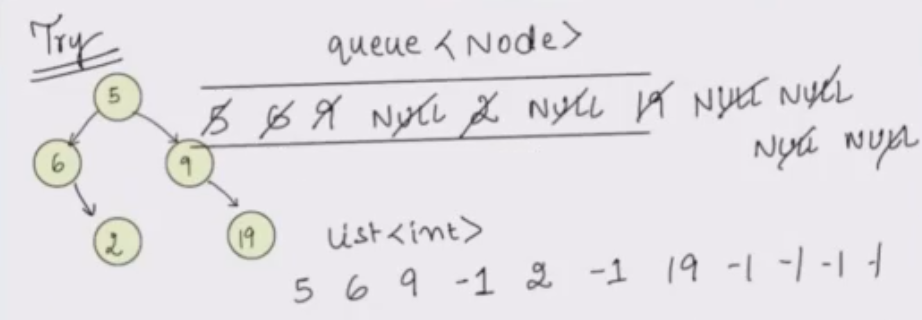 Try
queue <Node>
5
5 6 9 NULL 2 NULL 19 NULL NULL
NULL NULL
6 9
2 19
List<int>
5 6 9 -1 2 -1 19 -1 -1 -1 -1